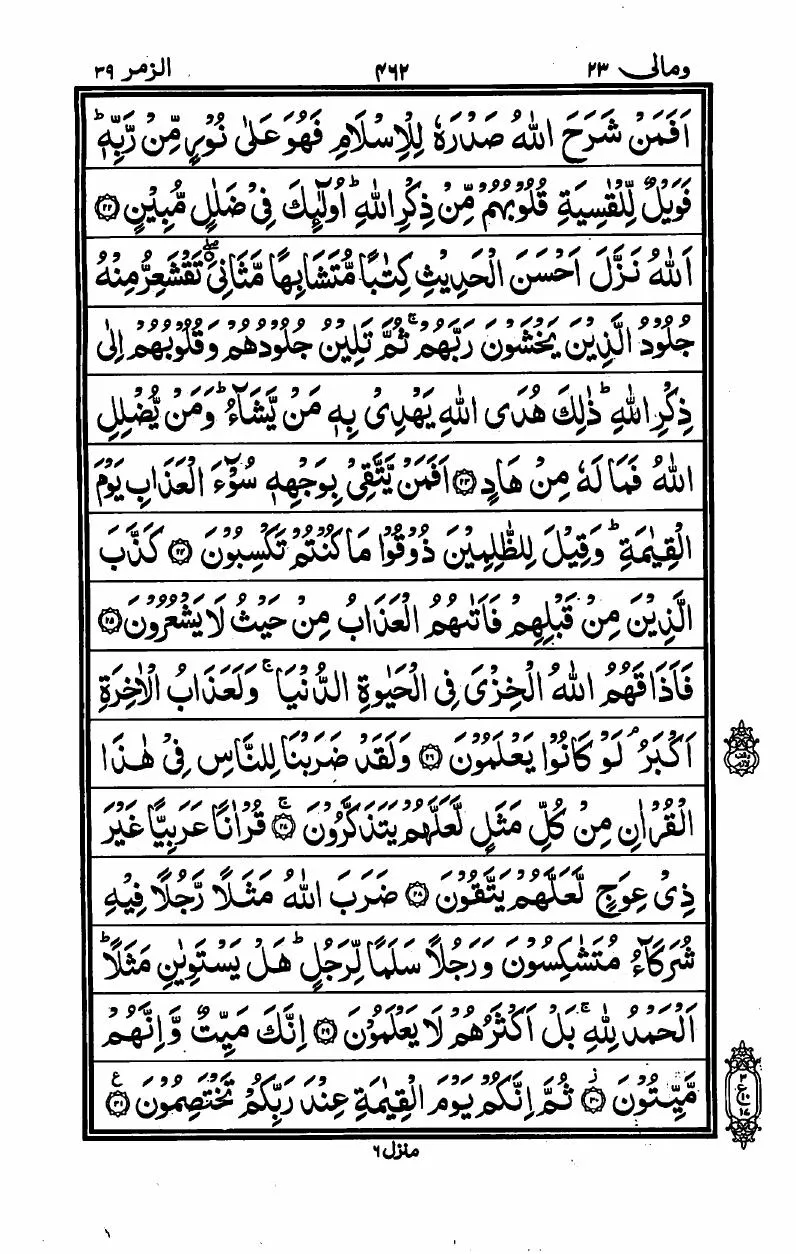 ومالى ٢٣ ٤٦٢ الزمر ٣٩
اَفَمَنْ شَرَحَ اللهُ صَدْرَهٗ لِلْاِسْلَامِ فَهُوَ عَلٰى نُوْرٍ مِّنْ رَّبِّهٖ ؕ
فَوَيْلٌ لِّلْقٰسِيَةِ قُلُوْبُهُمْ مِّنْ ذِكْرِ اللهِ ؕ اُولٰٓئِكَ فِىْ ضَلٰلٍ مُّبِيْنٍ ﴿٢٢﴾
اَللهُ نَزَّلَ اَحْسَنَ الْحَدِيْثِ كِتٰبًا مُّتَشَابِهًا مَّثَانِىَ ۖ تَقْشَعِرُّ مِنْهُ
جُلُوْدُ الَّذِيْنَ يَخْشَوْنَ رَبَّهُمْ ۚ ثُمَّ تَلِيْنُ جُلُوْدُهُمْ وَقُلُوْبُهُمْ اِلٰى
ذِكْرِ اللهِ ؕ ذٰلِكَ هُدَى اللهِ يَهْدِىْ بِهٖ مَنْ يَّشَآءُ ؕ وَمَنْ يُّضْلِلِ
اللهُ فَمَا لَهٗ مِنْ هَادٍ ﴿٢٣﴾ اَفَمَنْ يَّتَّقِىْ بِوَجْهِهٖ سُوْٓءَ الْعَذَابِ يَوْمَ
الْقِيٰمَةِ ؕ وَقِيْلَ لِلظّٰلِمِيْنَ ذُوْقُوْا مَا كُنْتُمْ تَكْسِبُوْنَ ﴿٢٤﴾ كَذَّبَ
الَّذِيْنَ مِنْ قَبْلِهِمْ فَاَتٰىهُمُ الْعَذَابُ مِنْ حَيْثُ لَا يَشْعُرُوْنَ ﴿٢٥﴾
فَاَذَاقَهُمُ اللهُ الْخِزْىَ فِى الْحَيٰوةِ الدُّنْيَا ۚ وَلَعَذَابُ الْاٰخِرَةِ
اَكْبَرُ ۘ لَوْ كَانُوْا يَعْلَمُوْنَ ﴿٢٦﴾ وَلَقَدْ ضَرَبْنَا لِلنَّاسِ فِىْ هٰذَا
الْقُرْاٰنِ مِنْ كُلِّ مَثَلٍ لَّعَلَّهُمْ يَتَذَكَّرُوْنَ ﴿٢٧﴾ۚ قُرْاٰنًا عَرَبِيًّا غَيْرَ
ذِىْ عِوَجٍ لَّعَلَّهُمْ يَتَّقُوْنَ ﴿٢٨﴾ ضَرَبَ اللهُ مَثَلًا رَّجُلًا فِيْهِ
شُرَكَآءُ مُتَشٰكِسُوْنَ وَرَجُلًا سَلَمًا لِّرَجُلٍ ؕ هَلْ يَسْتَوِيٰنِ مَثَلًا ؕ
اَلْحَمْدُ لِلّٰهِ ۚ بَلْ اَكْثَرُهُمْ لَا يَعْلَمُوْنَ ﴿٢٩﴾ اِنَّكَ مَيِّتٌ وَّاِنَّهُمْ
مَّيِّتُوْنَ ﴿٣٠﴾ز ثُمَّ اِنَّكُمْ يَوْمَ الْقِيٰمَةِ عِنْدَ رَبِّكُمْ تَخْتَصِمُوْنَ ﴿٣١﴾ ع
منزل ٦